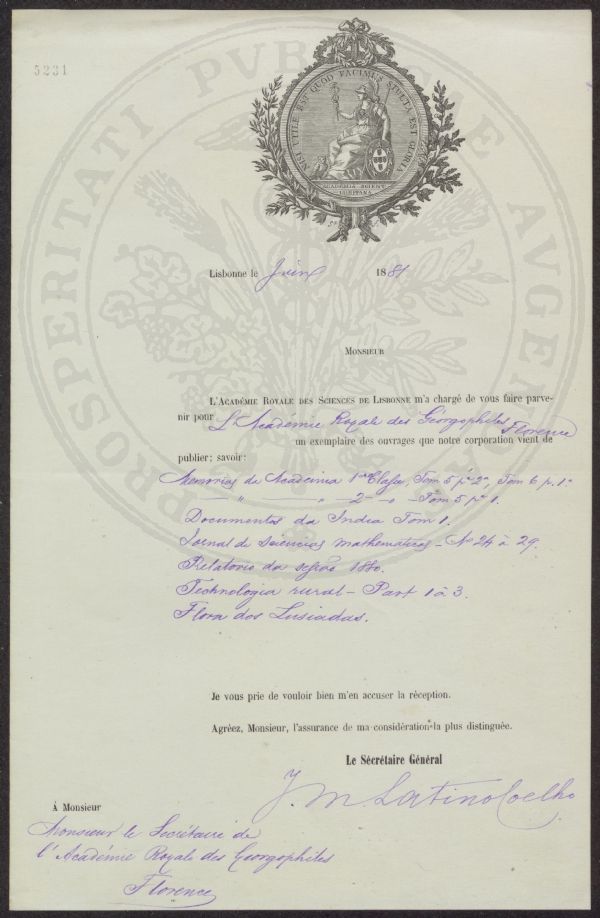 5231
PROSPERITATI PVBLICAE AVGENDAE
NISI UTILE EST QUOD FACIMUS STULTA EST GLORIA
ACADEMIA SCIENT
Lisbonne le Juin 1881
MONSIEUR
L'ACADÉMIE ROYALE DES SCIENCES DE LISBONNE m'a chargé de vous faire parve-
nir pour L'Académie Royale des Géorgophiles Florence
un exemplaire des ouvrages que notre corporation vient de
publier; savoir:
Memorias da Academia 1ª Classe, Tom 5 p. 2ª, Tom 6 p. 1ª
— " — " — 2ª — " — Tom 5 pª 1.
Documentos da India Tom 1.
Jornal de sciencias mathematicas — Nº 24 à 29.
Relatorio da sessão 1880.
Technologia rural — Part 1 à 3.
Flora dos Lusiadas.
Je vous prie de vouloir bien m'en accuser la réception.
Agréez, Monsieur, l'assurance de ma considération la plus distinguée.
Le Sécrétaire Général
J. M. Latino Coelho
À Monsieur
Monsieur le Secrétaire de
l'Académie Royale des Georgophiles
Florence